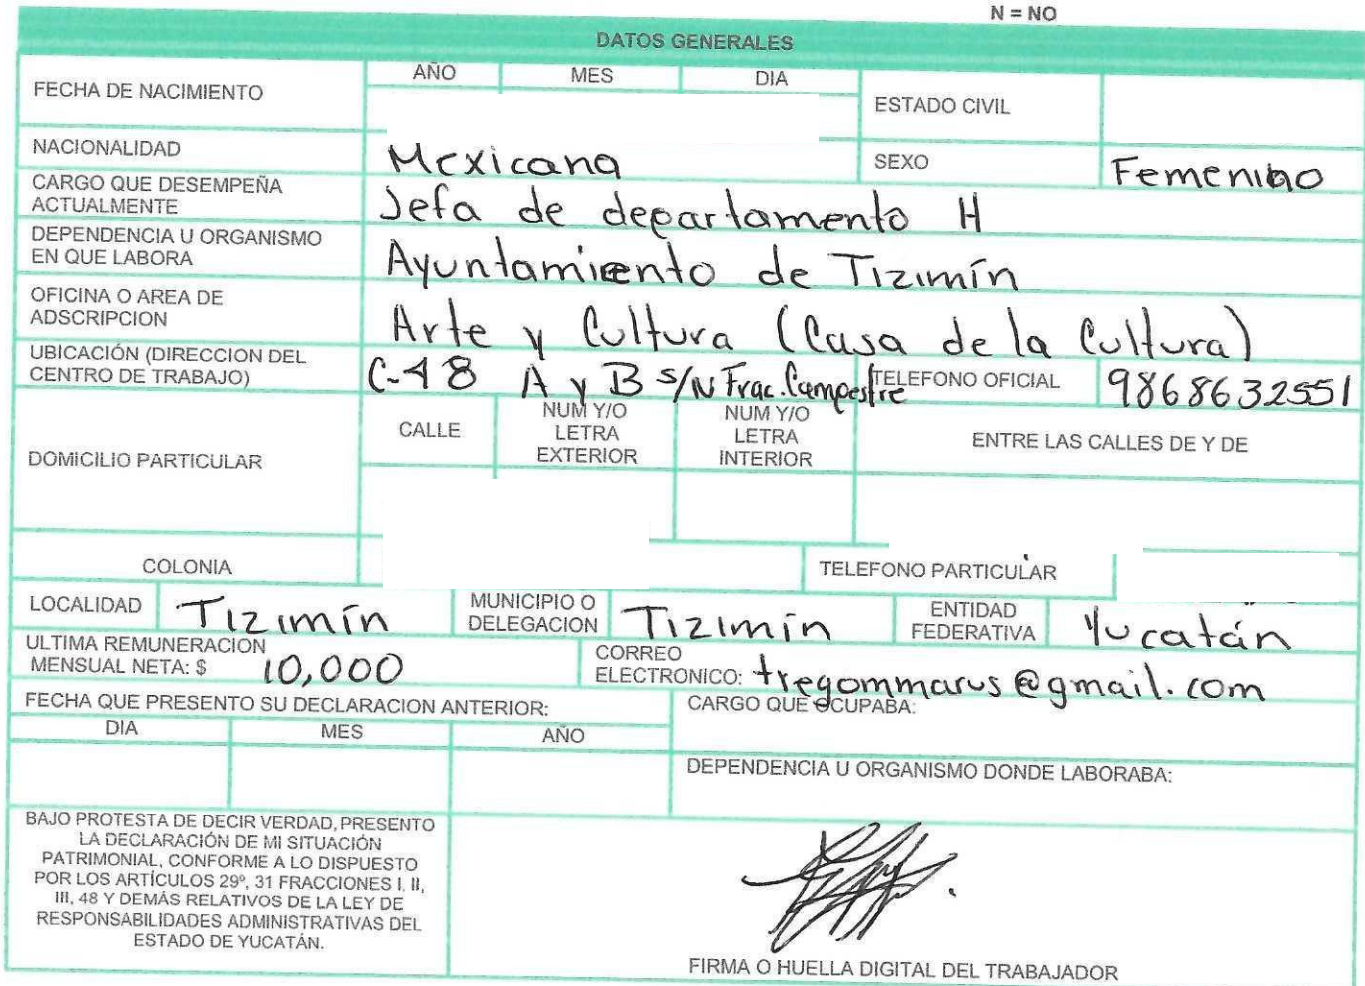 N = NO
DATOS GENERALES
FECHA DE NACIMIENTO
AÑO MES DIA
ESTADO CIVIL
NACIONALIDAD Mexicana SEXO Femenino
CARGO QUE DESEMPEÑA
ACTUALMENTE
Jefa de departamento H
DEPENDENCIA U ORGANISMO
EN QUE LABORA
Ayuntamiento de Tizimín
OFICINA O AREA DE
ADSCRIPCION
Arte y Cultura (Casa de la Cultura)
UBICACIÓN (DIRECCION DEL
CENTRO DE TRABAJO)
C-48 A y B S/N Frac. Campestre TELEFONO OFICIAL 9868632551
DOMICILIO PARTICULAR
CALLE
NUM Y/O
LETRA
EXTERIOR
NUM Y/O
LETRA
INTERIOR
ENTRE LAS CALLES DE Y DE
COLONIA TELEFONO PARTICULAR
LOCALIDAD Tizimín
MUNICIPIO O
DELEGACION
Tizimín
ENTIDAD
FEDERATIVA
Yucatán
ULTIMA REMUNERACION
MENSUAL NETA: $ 10,000
CORREO
ELECTRONICO: tregommarus@gmail.com
FECHA QUE PRESENTO SU DECLARACION ANTERIOR:
CARGO QUE OCUPABA:
DIA MES AÑO
DEPENDENCIA U ORGANISMO DONDE LABORABA:
BAJO PROTESTA DE DECIR VERDAD, PRESENTO
LA DECLARACIÓN DE MI SITUACIÓN
PATRIMONIAL, CONFORME A LO DISPUESTO
POR LOS ARTÍCULOS 29º, 31 FRACCIONES I, II,
III, 48 Y DEMÁS RELATIVOS DE LA LEY DE
RESPONSABILIDADES ADMINISTRATIVAS DEL
ESTADO DE YUCATÁN.
FIRMA O HUELLA DIGITAL DEL TRABAJADOR